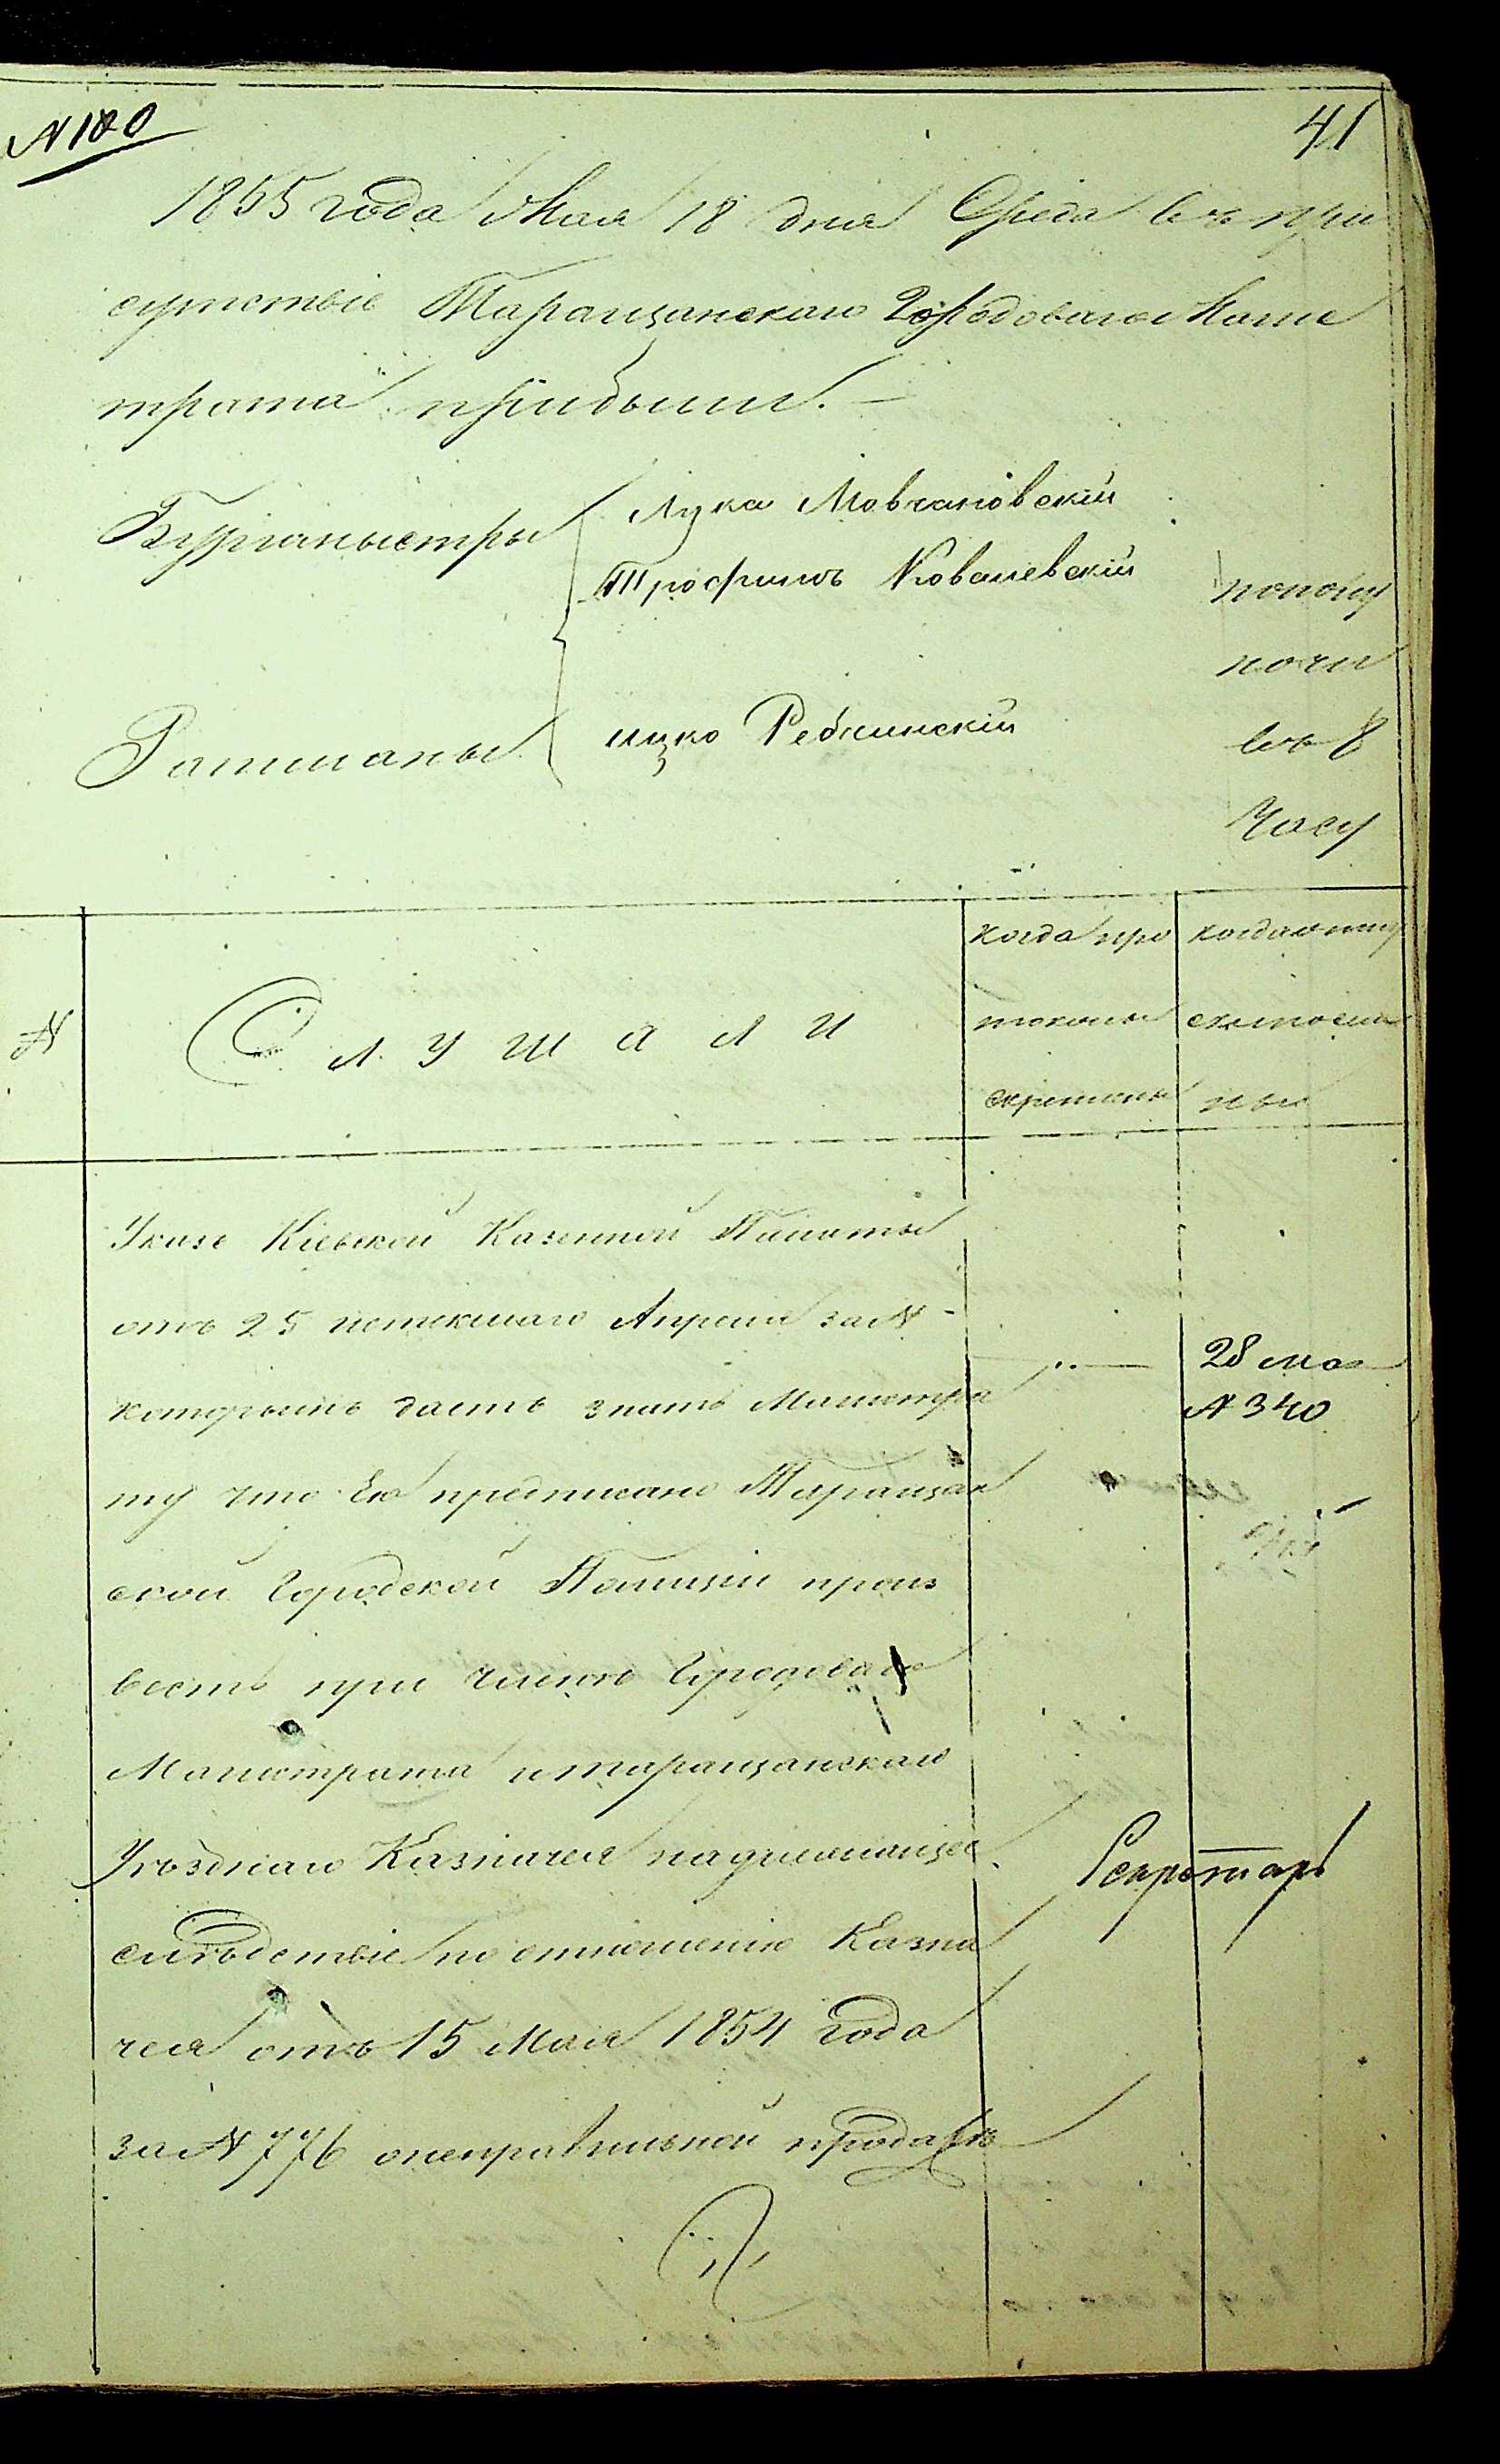 N 180
41
1855 года Мая 18 дня Среда въ при
сутствіе Таращанскаго Городоваго Маги
страта прибыли. —
Бургамыстры
Лука Мовчановскій
Трофимъ Ковалевскій
Ратманы
ицко Ребкинскій
пополу
ночи
въ 8
Часу
N
Слушали
когда про
токолы
скреплены
когда
ны
Указъ Кіевской Казенной Палаты
отъ 25 истекшаго Апреля за N -
которымъ даетъ знать Магистра
ту что Ею предписано Таращан
ской Городской Полиціи произ
весть при членѣ Городоваго
Магистрата и таращанскаго
Уѣзднаго Казначея надлежащее
слѣдствіе по отношенію Казна
чея отъ 15 Мая 1854 года
за N 776 онеправильной продажѣ
28 мая
N 340
Секретарь